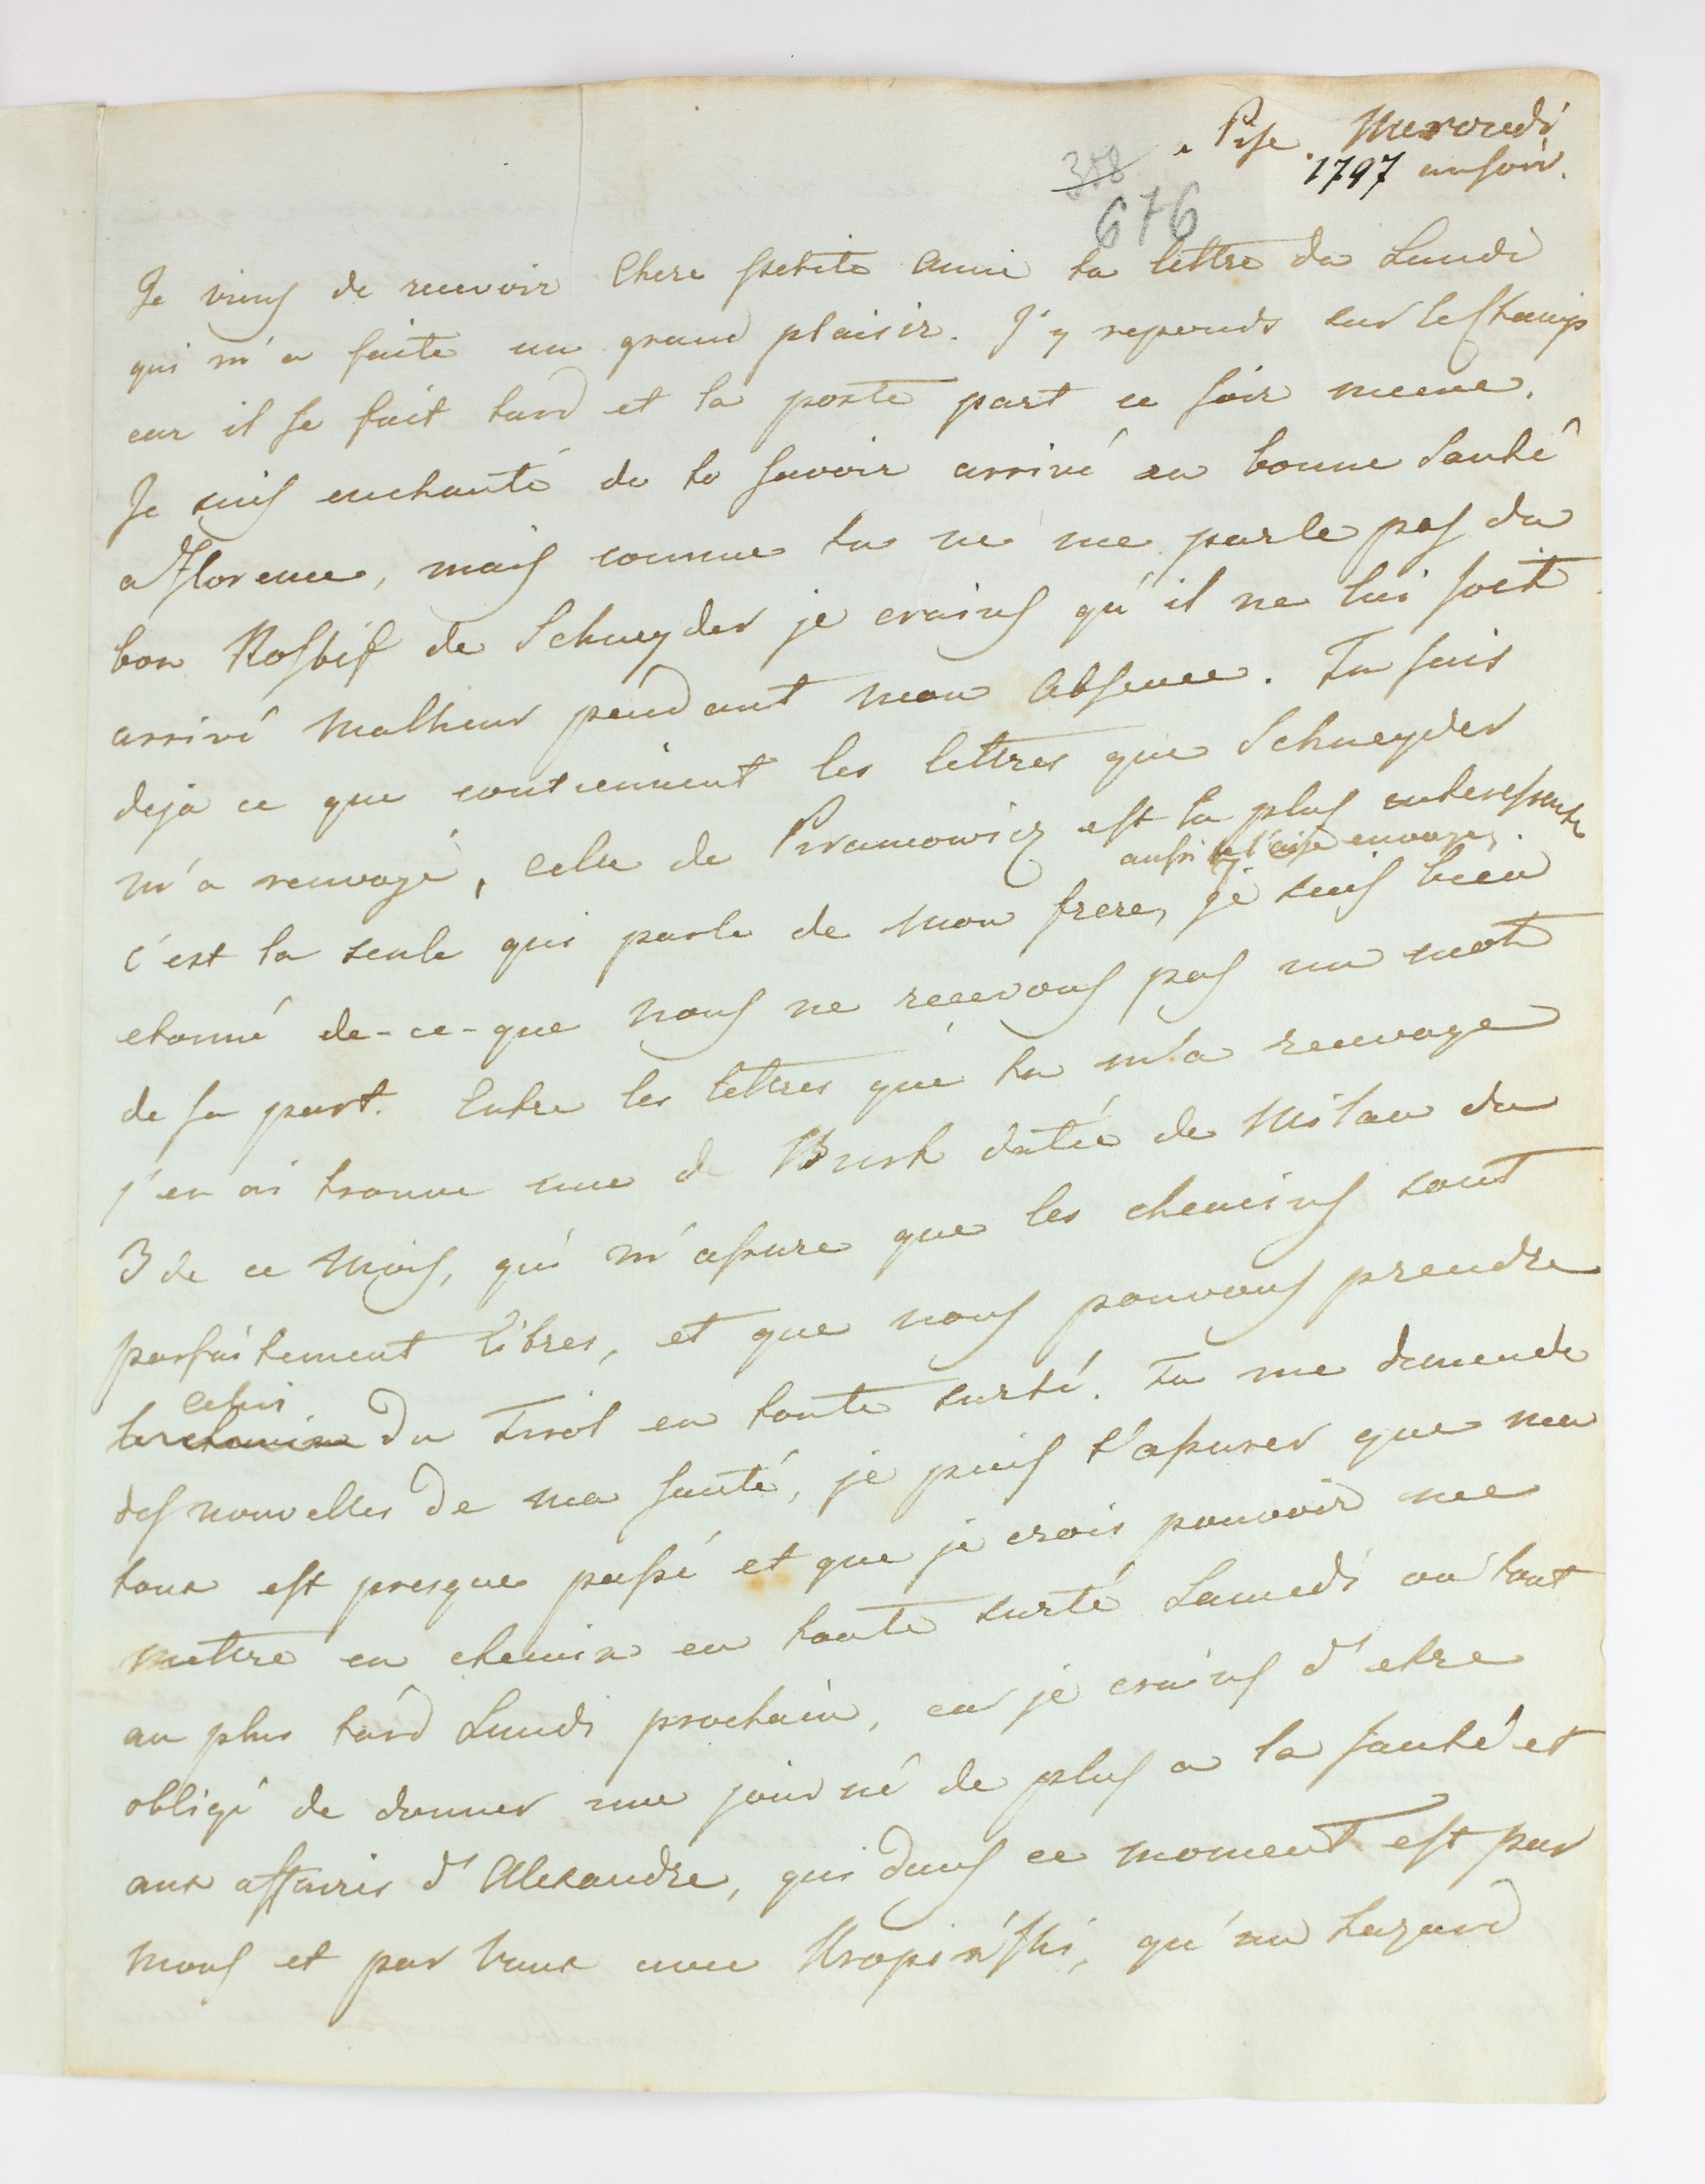 a Pise. Mercredi
1797 au soir.
358
676
Je viens de recevoir Chere petite Amie ta lettre du Lundi
qui m'a faite un grand plaisir. J'y reponds sur le champ
car il se fait tard et la poste part ce soir meme.
Je suis enchanté de te savoir arrivé en bonne Santé
a Florence, mais comme tu ne me parle pas du
bon Rosbif de Schneyder je crains qu'il ne lui soit
arrivé Malheur pendant mon Absence. Tu sais
deja ce que contiennent les lettres que Schneyder
m'a renvoyé, celle de Piramowicz est la plus interessante
aussi te l'ai-je envoyez.
c'est la seule qui parle de Mon frere, je suis bien
etonné de-ce-que Nous ne recevons pas un mot
de sa part. Entre les lettres que tu m'a renvoye
j'en ai trouve une de Bush datée de Milan du
3 de ce Mois, qui m'assure que les chemins sont
parfaitement libres, et que nous pouvons prendre
celui
le chemin du Tirol en toute surté. Tu me demande
des nouvelles de ma santé, je puis t'assurer que ma
toux est presque passé et que je crois pouvoir me
mettre en chemin en toute surté Samedi ou tout
au plus tard Lundi prochain, car je crains d'etre
obligé de donner une journé de plus a la santé et
aux affaires d'Alexandre, qui dans ce moment est par
Monts et par Vaux avec Kropiński, qu'un hazard